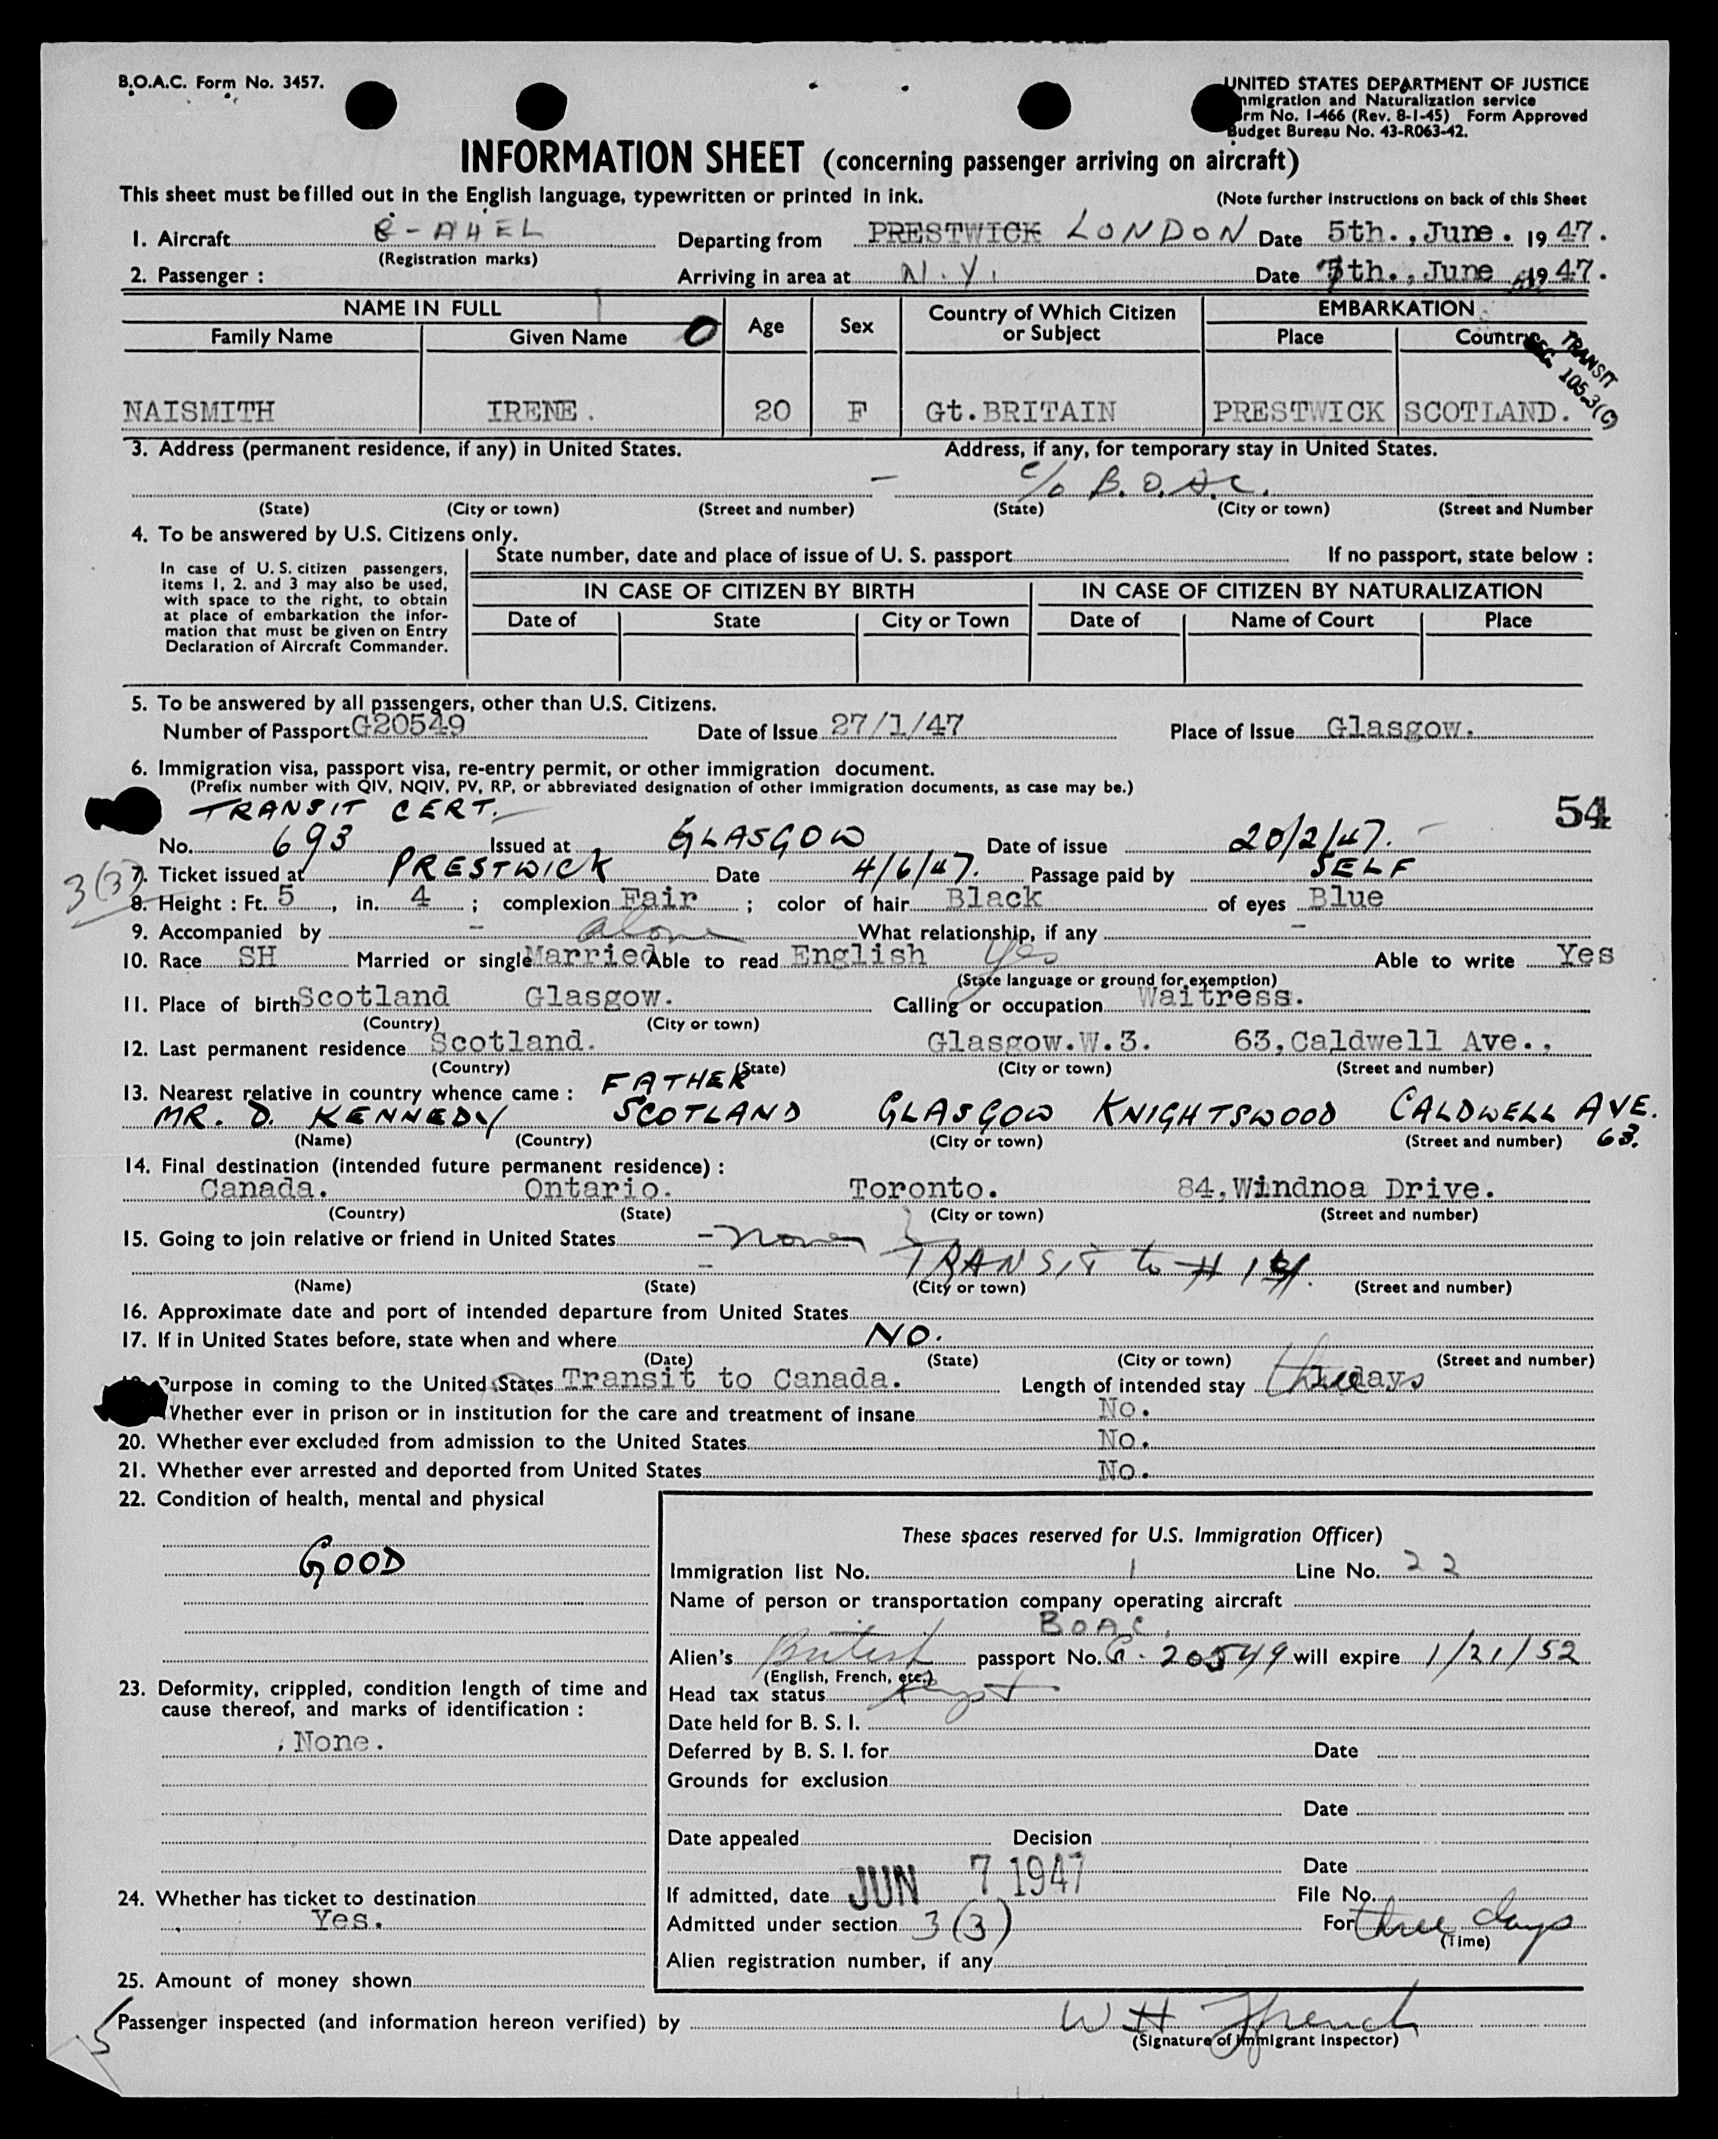 B.O.A.C. Form No. 3457.
UNITED STATES DEPARTMENT OF JUSTICE
mmigration and Naturalization service
rm No. I-466 (Rev. 8-1-45) Form Approved
Budget Bureau No. 43-R063-42.
INFORMATION SHEET (concerning passenger arriving on aircraft)
This sheet must be filled out in the English language, typewritten or printed in ink.
(Note further instructions on back of this Sheet
1. Aircraft G-AHEL Departing from PRESTWICK LONDON Date 5th., June. 19 47.
(Registration marks)
2. Passenger : Arriving in area at N.Y. Date 7th., June 19 47.
NAME IN FULL Age Sex Country of Which Citizen or Subject EMBARKATION
Family Name Given Name O Place Country
TRANSIT
SEC. 105.3(C)
NAISMITH IRENE. 20 F Gt.BRITAIN PRESTWICK SCOTLAND.
3. Address (permanent residence, if any) in United States. Address, if any, for temporary stay in United States.
- c/o B.O.A.C.
(State) (City or town) (Street and number) (State) (City or town) (Street and Number
4. To be answered by U.S. Citizens only.
State number, date and place of issue of U. S. passport If no passport, state below :
In case of U. S. citizen passengers,
items 1, 2. and 3 may also be used,
with space to the right, to obtain
at place of embarkation the infor-
mation that must be given on Entry
Declaration of Aircraft Commander.
IN CASE OF CITIZEN BY BIRTH IN CASE OF CITIZEN BY NATURALIZATION
Date of State City or Town Date of Name of Court Place
5. To be answered by all passengers, other than U.S. Citizens.
Number of Passport G20549 Date of Issue 27/1/47 Place of Issue Glasgow.
6. Immigration visa, passport visa, re-entry permit, or other immigration document.
(Prefix number with QIV, NQIV, PV, RP, or abbreviated designation of other immigration documents, as case may be.)
TRANSIT CERT. 54
No. 693 Issued at GLASGOW Date of issue 20/2/47.
3(3)
7. Ticket issued at PRESTWICK Date 4/6/47. Passage paid by SELF
8. Height : Ft. 5, in. 4 ; complexion Fair ; color of hair Black of eyes Blue
9. Accompanied by - alone What relationship, if any -
10. Race SH Married or single Married Able to read English Yes Able to write Yes
(State language or ground for exemption)
11. Place of birth Scotland Glasgow. Calling or occupation Waitress.
(Country) (City or town)
12. Last permanent residence Scotland. Glasgow.W.3. 63,Caldwell Ave.,
(Country) (State) (City or town) (Street and number)
13. Nearest relative in country whence came : FATHER
MR. D. KENNEDY SCOTLAND GLASGOW KNIGHTSWOOD CALDWELL AVE.
(Name) (Country) (City or town) (Street and number) 63.
14. Final destination (intended future permanent residence) :
Canada. Ontario. Toronto. 84,Windnoa Drive.
(Country) (State) (City or town) (Street and number)
15. Going to join relative or friend in United States - None
- TRANSIT to # 14.
(Name) (State) (City or town) (Street and number)
16. Approximate date and port of intended departure from United States
17. If in United States before, state when and where NO.
(Date) (State) (City or town) (Street and number)
Purpose in coming to the United States Transit to Canada. Length of intended stay three days
Whether ever in prison or in institution for the care and treatment of insane No.
20. Whether ever excluded from admission to the United States No.
21. Whether ever arrested and deported from United States No.
22. Condition of health, mental and physical
GOOD
These spaces reserved for U.S. Immigration Officer)
Immigration list No. 1 Line No. 22
Name of person or transportation company operating aircraft
BOAC.
Alien's British passport No. G. 20549 will expire 1/21/52
(English, French, etc.)
23. Deformity, crippled, condition length of time and
cause thereof, and marks of identification :
None.
Head tax status
Date held for B. S. I.
Deferred by B. S. I. for Date
Grounds for exclusion
Date
Date appealed Decision
Date
If admitted, date JUN 7 1947 File No.
24. Whether has ticket to destination
Yes.
Admitted under section 3(3) For three days
(Time)
Alien registration number, if any
25. Amount of money shown
5
Passenger inspected (and information hereon verified) by W H French
(Signature of Immigrant Inspector)